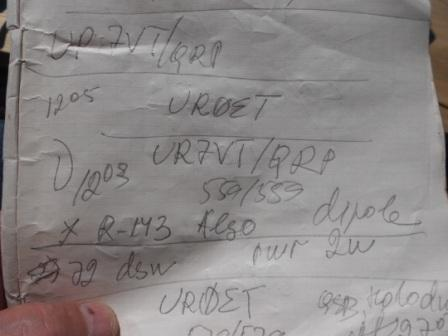 UR7VT/QRP
1205 UR0ET
1) 1203 UR7VT/QRP
559/559
* R-143 Also dipole
pwr 2w
72 dsw
UR0ET QSB